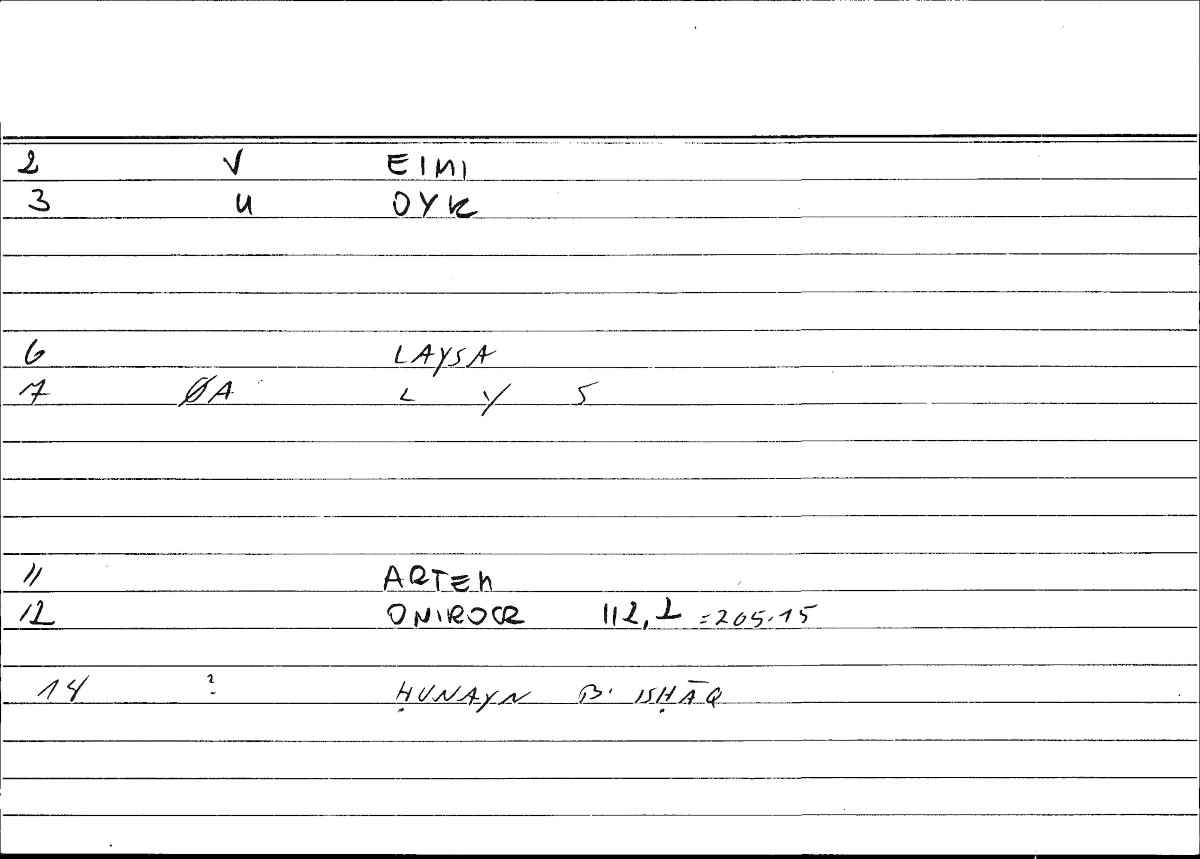 2 V EIMI
3 U OYK
6 LAYSA
7 ØA L Y S
11 ARTEM
12 ONIROCR 112,1 =205.15
14 ? ḤUNAYN B. ISḤĀQ